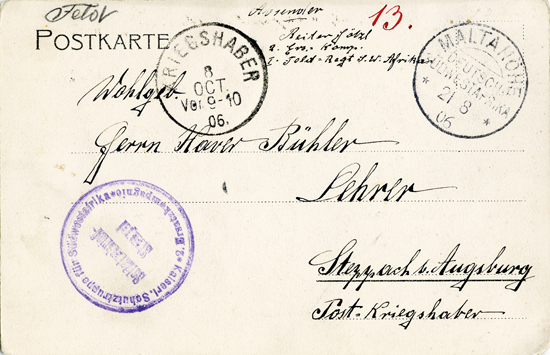 Feld
POSTKARTE
Absender
13.
Reiter Hötzl
2. Ers.- Komp.
2. Feld-Regt S.W. Afrika
KRIEGSHABER
8
OCT.
Vor 9-10
06.
MALTAHÖHE
DEUTSCH-
SÜDWESTAFRIKA
* 21 8 *
06
Wohlgeb
Herrn Xaver Bühler
Lehrer
Steppach b. Augsburg
Post-Kriegshaber
Kaiserl. Schutztruppe für Südwestafrika * 2. Ersatzkompagnie *